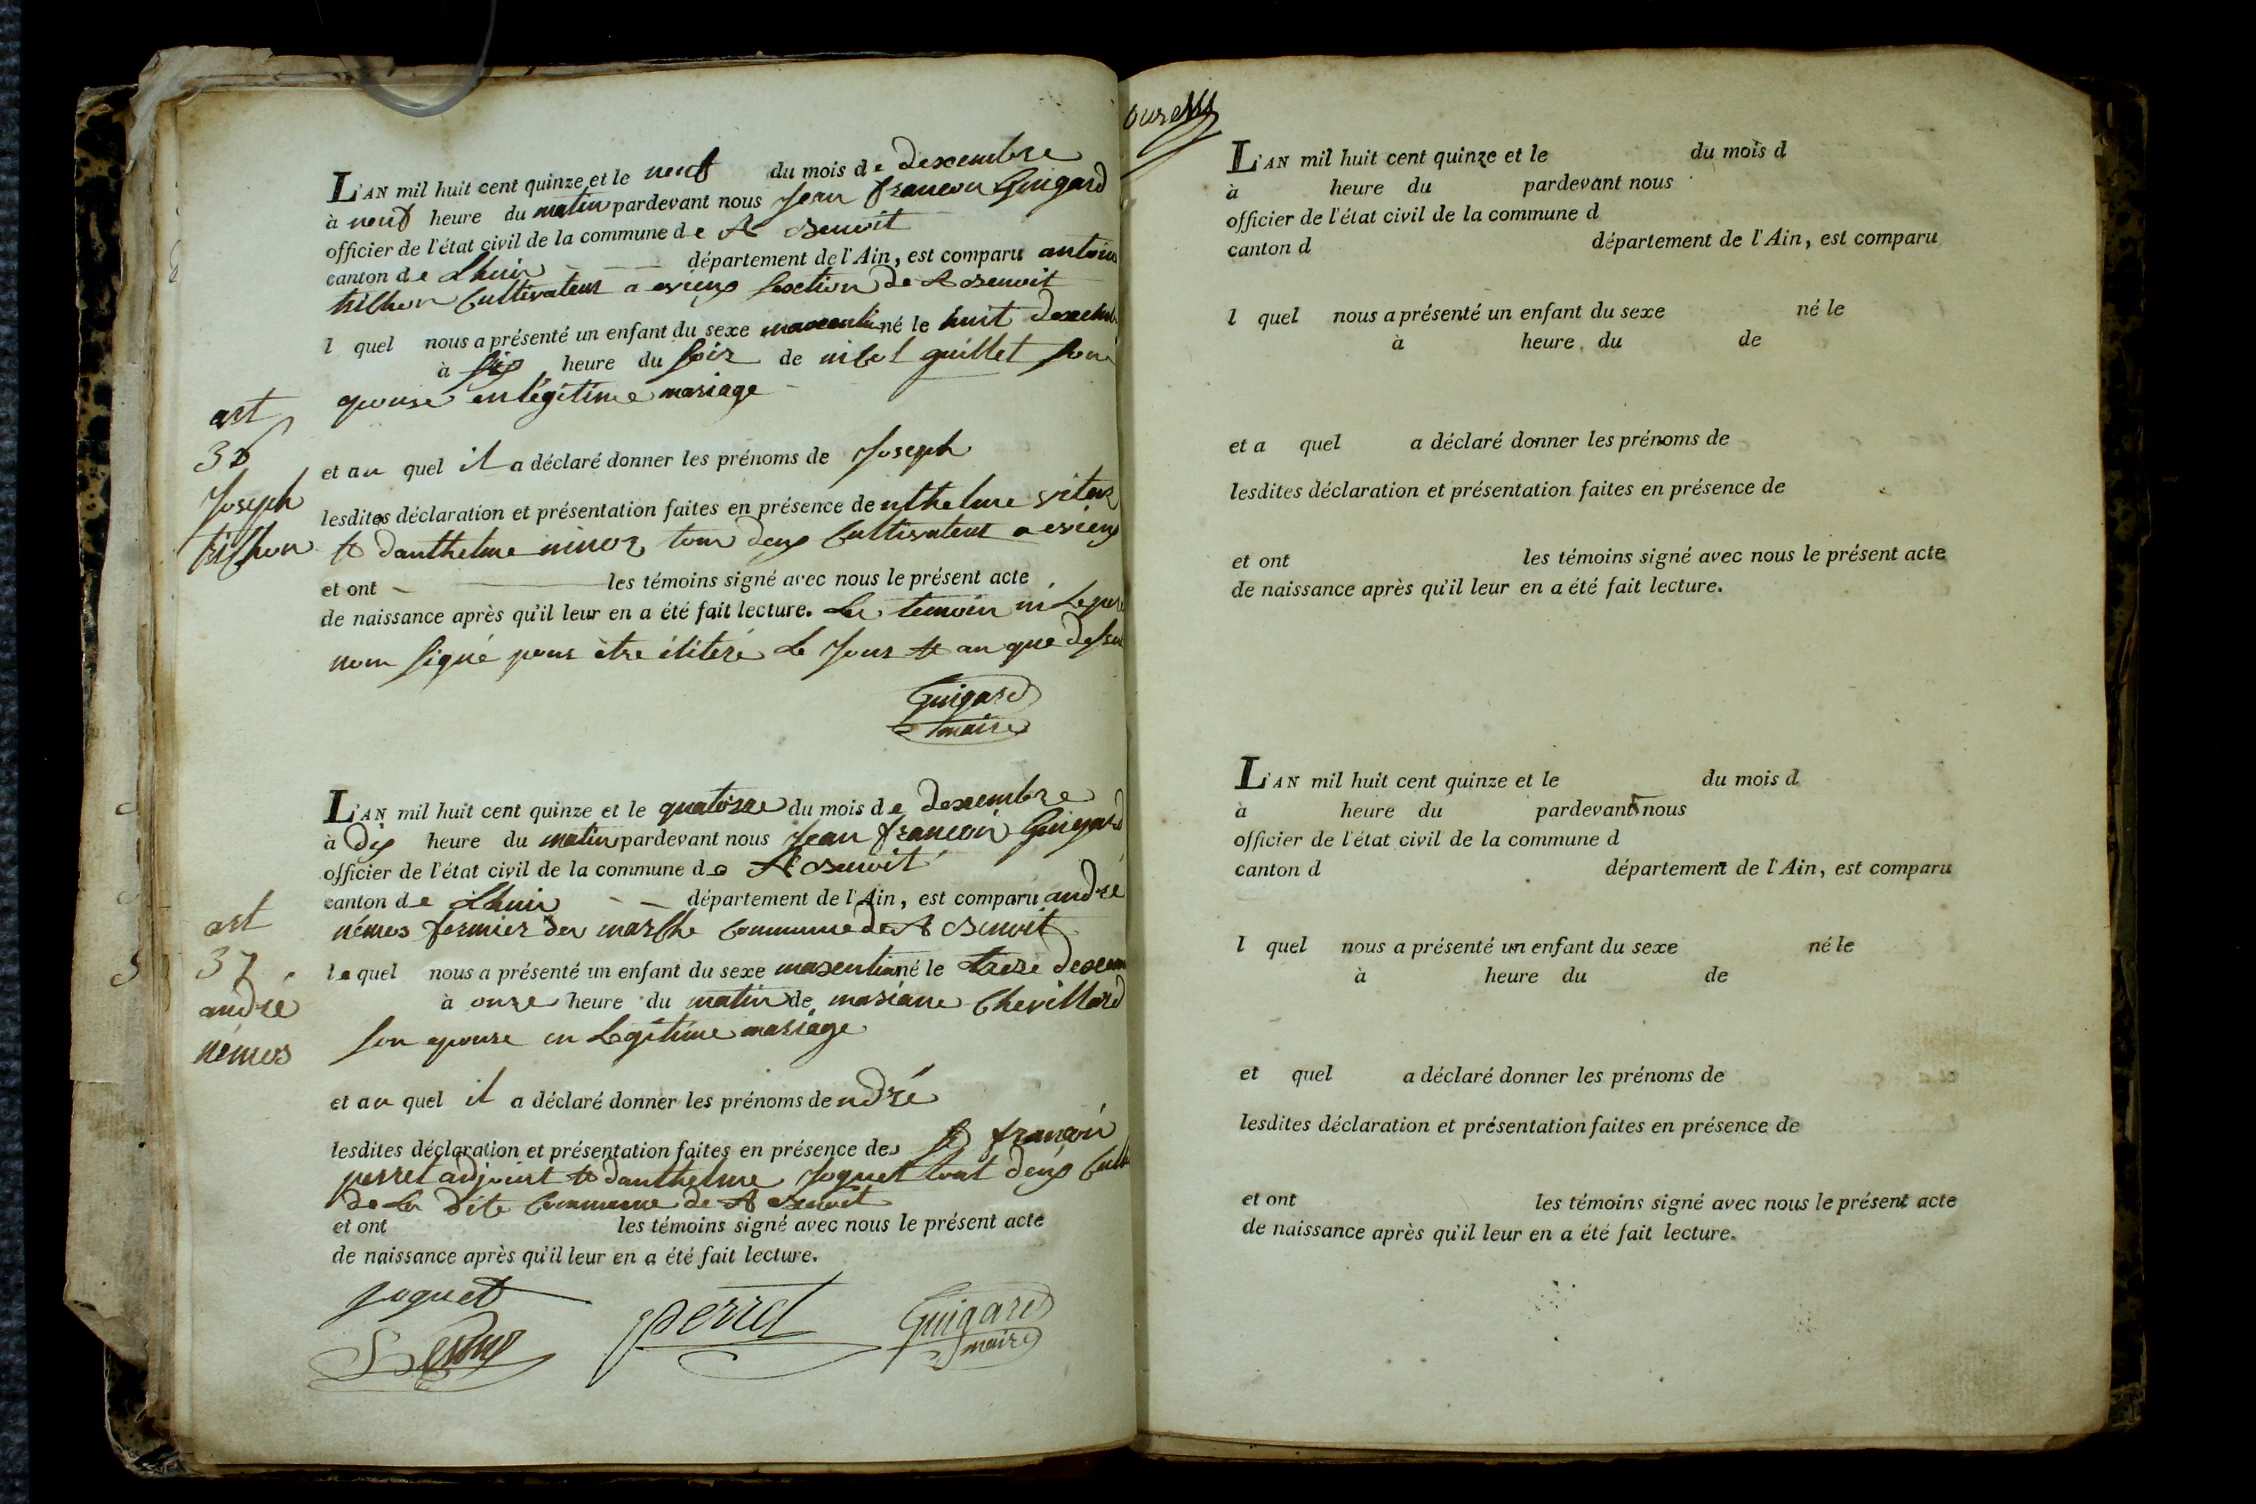 L'AN mil huit cent quinze et le neuf du mois de dexembre
à neuf heure du matin pardevant nous Jean francoi Guigard
officier de l'état civil de la commune de St Benoit
canton de Lhuis département de l'Ain, est comparu antoin
trichon Cultivateur a evieux Section de St Benoit
l quel nous a présenté un enfant du sexe né le huit dexemb
à six heure du soir de guillet son
epouse en légitime mariage
art
36
Joseph
trichon
et au quel il a déclaré donner les prénoms de Joseph
lesdites déclaration et présentation faites en présence de
et danthelme tour deux Cultivateur a evieux
et ont les témoins signé avec nous le présent acte
de naissance après qu'il leur en a été fait lecture. Les temoin ni Le pere
nom signé pour être élitéré Le Jour et an que dessu
Guigard
maire
L'AN mil huit cent quinze et le quatorze du mois de dexembre
à dix heure du matin pardevant nous Jean francoi Guigard
officier de l'état civil de la commune de St Benoit
canton de Lhuis département de l'Ain, est comparu andré
némos fermier des marche Commune de St Benoit
art
37
andré
némos
le quel nous a présenté un enfant du sexe né le treize dexem
à onze heure du matin de mariane Chevillard
son epouse en Légitime mariage
et au quel il a déclaré donner les prénoms de ndré
lesdites déclaration et présentation faites en présence de francoi
perret adjoint et danthelme Joguet tout deux Cult
de La dite Commune de St Benoit
et ont les témoins signé avec nous le présent acte
de naissance après qu'il leur en a été fait lecture.
Joguet
Perret
Guigard
maire
L'AN mil huit cent quinze et le du mois d
à heure du pardevant nous
officier de l'état civil de la commune d
canton d département de l'Ain, est comparu
l quel nous a présenté un enfant du sexe né le
à heure du de
et a quel a déclaré donner les prénoms de
lesdites déclaration et présentation faites en présence de
et ont les témoins signé avec nous le présent acte
de naissance après qu'il leur en a été fait lecture.
L'AN mil huit cent quinze et le du mois d
à heure du pardevant nous
officier de l'état civil de la commune d
canton d département de l'Ain, est comparu
l quel nous a présenté un enfant du sexe né le
à heure du de
et quel a déclaré donner les prénoms de
lesdites déclaration et présentation faites en présence de
et ont les témoins signé avec nous le présent acte
de naissance après qu'il leur en a été fait lecture.